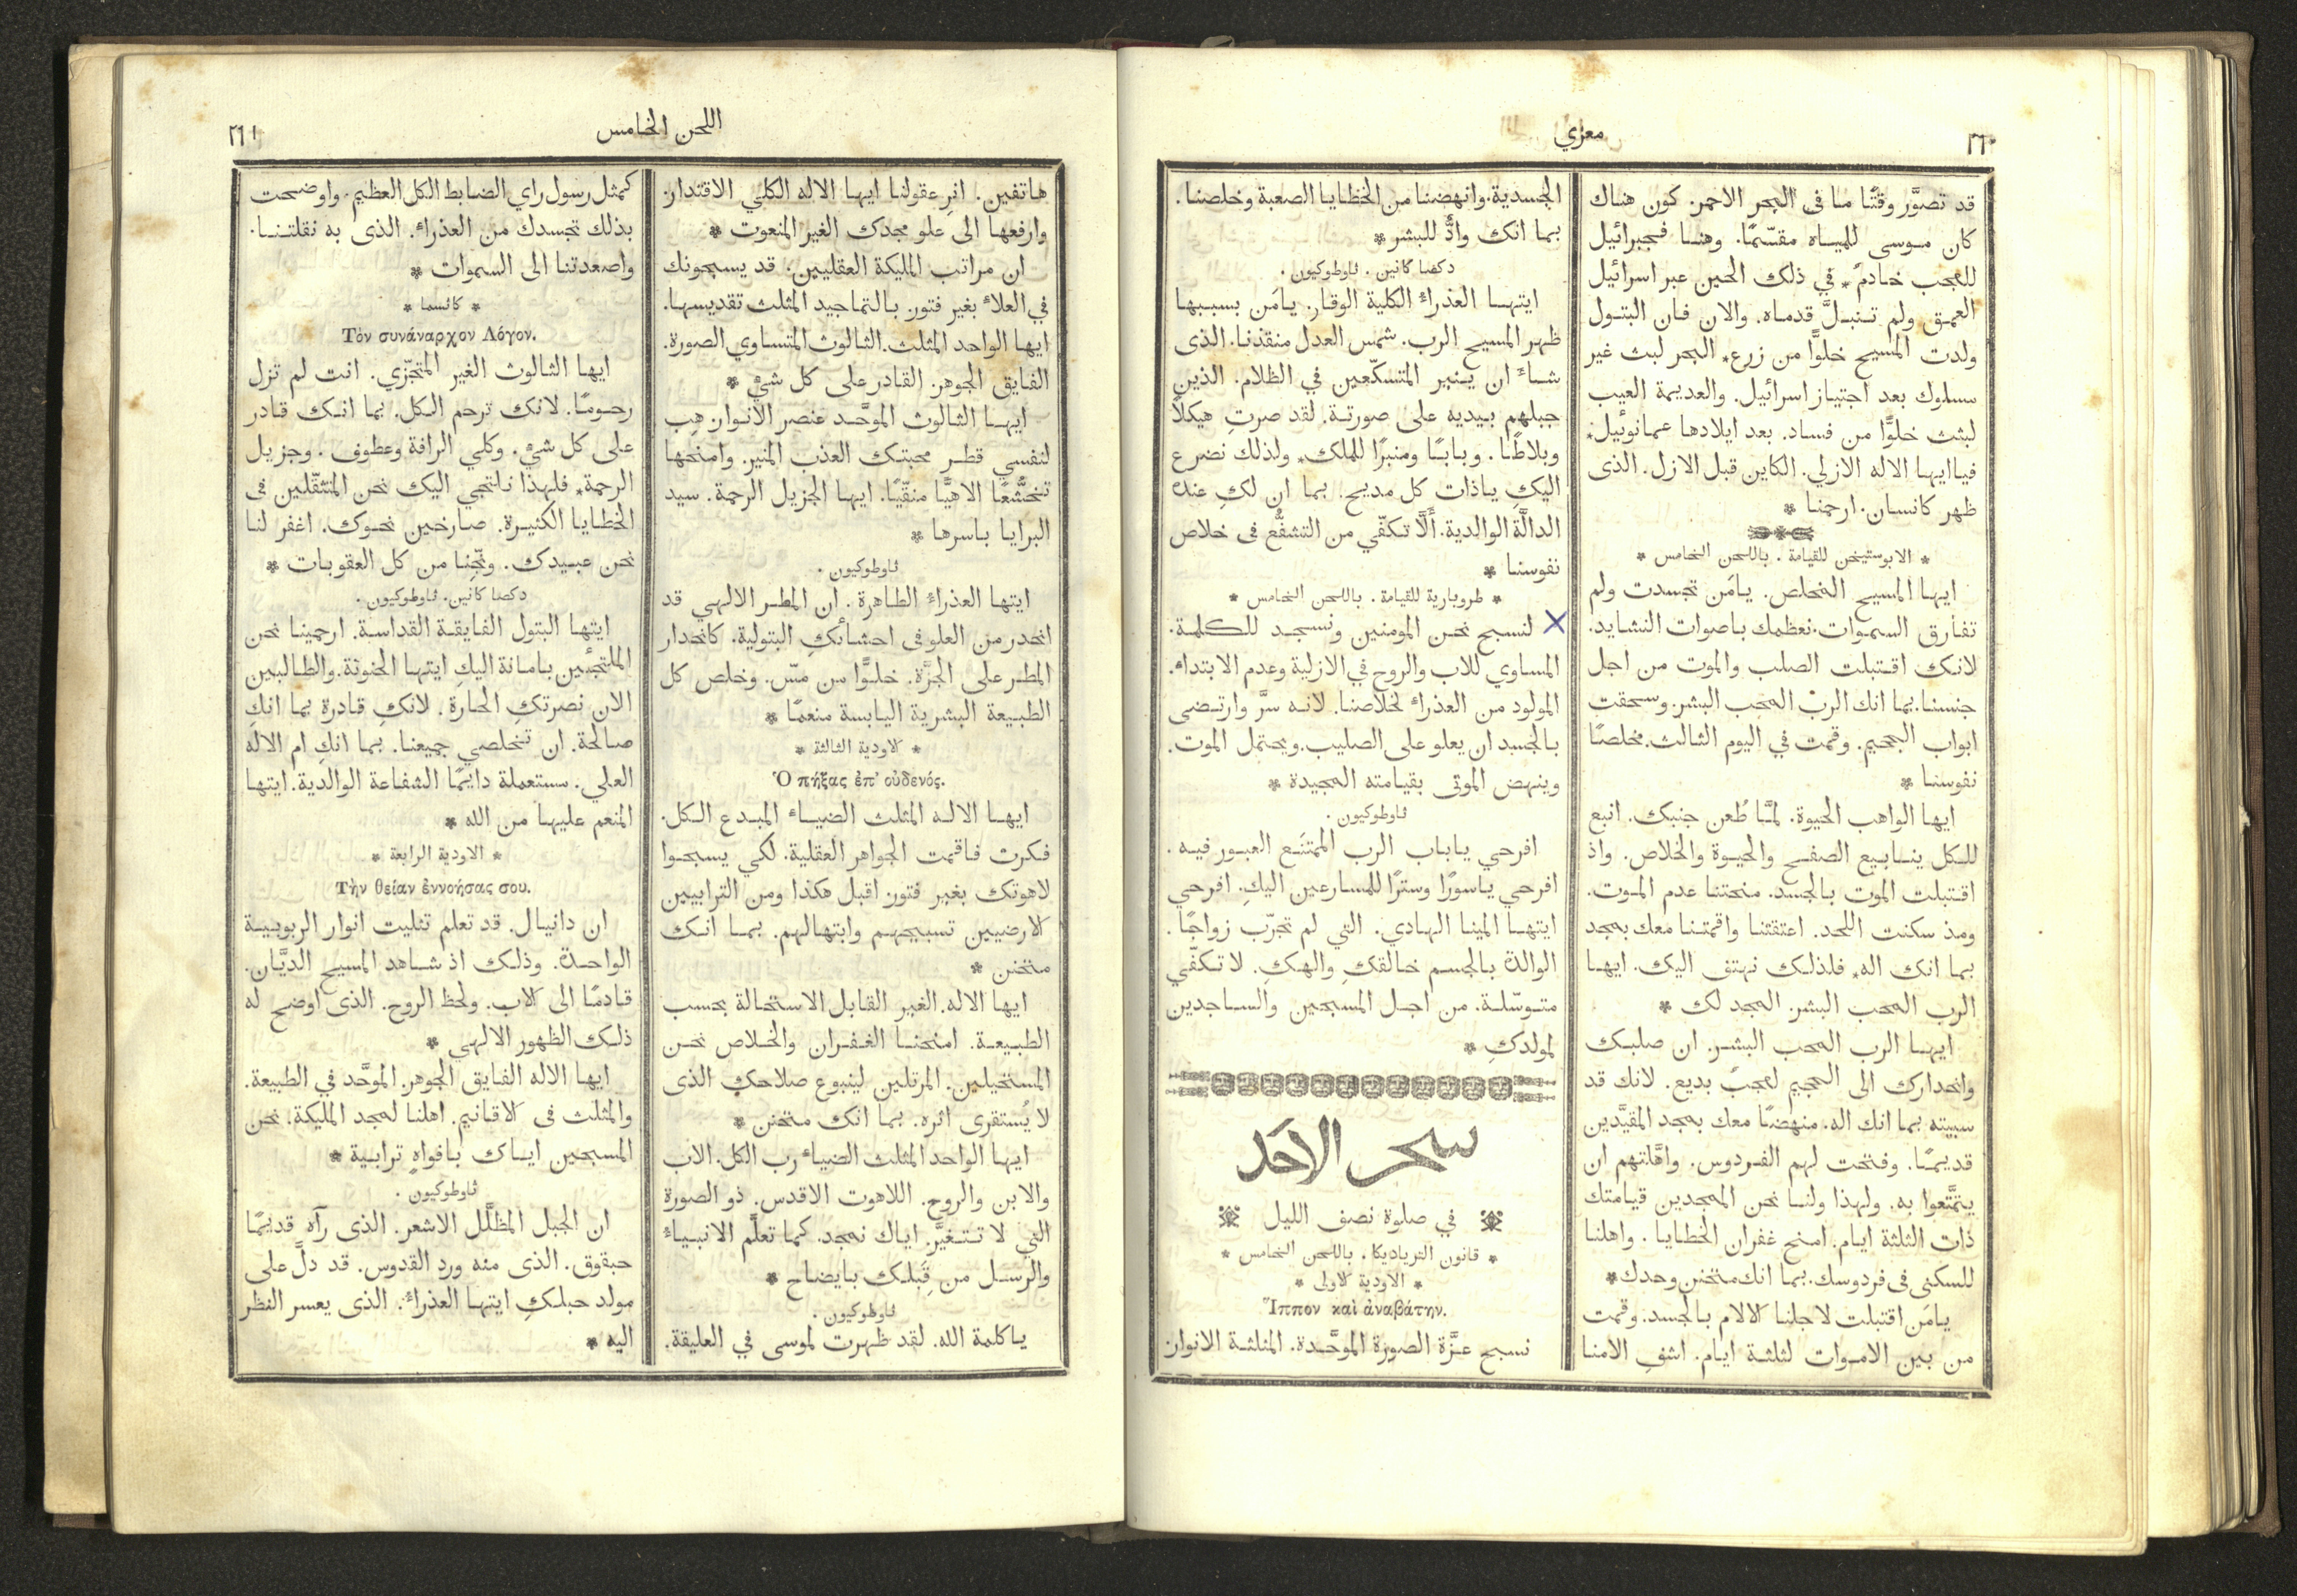 ٢٦٠
معزي
قد تصوَّر وقتًا ما فى البحر الاحمر. كون هناك
كان موسى للمياه مقسّمًا. وهنا فجبرائيل
للعجب خادمٌ * في ذلك الحين عبر اسرائيل
العمق ولم تنبلَّ قدماه. والان فان البتول
ولدت المسيح خلوًّا من زرع * البحر لبث غير
مسلوك بعد اجتياز اسرائيل. والعديمة العيب
لبثت خلوًّا من فساد. بعد ايلادها عمانوئيل *
فياايها الاله الازلي. الكاين قبل الازل. الذى
ظهر كانسان. ارحمنا *
* الابوستيخن للقيامة . باللحن الخامس *
ايها المسيح المخلص. يامَن تجسدت ولم
تفارق السموات. نعظمك باصوات النشايد.
لانك اقتبلت الصلب والموت من اجل
جنسنا. بما انك الربّ المحب البشر. وسحقت
ابواب الجحيم. وقمت في اليوم الثالث. مخلصًا
نفوسنا *
ايها الواهب الحيوة. لمَّا طُعن جنبك. انبع
للكل ينابيع الصفح والحيوة والخلاص. واذ
اقتبلت الموت بالجسد. منحتنا عدم الموت.
ومذ سكنت اللحد. اعتقتنا واقمتنا معك بمجد
بما انك اله * فلذلك نهتف اليك. ايها
الرب المحب البشر. المجد لك *
ايها الرب المحب البشر. ان صلبك
وانحدارك الى الجحيم لعجبٌ بديع. لانك قد
سبيته بما انك اله. منهضًا معك بمجد المقيَّدين
قديمًا. وفتحت لهم الفردوس. واهَّلتهم ان
يتمَّتعوا به. ولهذا ولنا نحن الممجدين قيامتك
ذات الثلثة ايام. امنح غفران الخطايا . واهلنا
للسكنى فى فردوسك. بما انك متحنن وحدك *
يامَن اقتبلت لاجلنا الالام بالجسد. وقمت
من بين الاموات لثلثة ايام. اشفِ الامنا
الجسدية. وانهضنا من الخطايا الصعبة وخلصنا.
بما انك وادٌّ للبشر *
دكصا كانين . ثاوطوكيون .
ايتها العذراءُ الكلية الوقار. يامَن بسببها
ظهر المسيح الرب. شمس العدل منقذنا. الذى
شاءَ ان ينير المتسكّعين في الظلام. الذين
جبلهم بيديه على صورتة. لقد صرتِ هيكلاً
وبلاطًا. وبابًا ومنبرًا للملك * ولذلك نضرع
اليكِ ياذات كل مديح. بما ان لكِ عندهُ
الدالَّة الوالدية. ألَّا تكفّي من التشفُّع فى خلاص
نفوسنا *
* طروبارية للقيامة . باللحن الخامس *
لنسبح نحن المومنين ونسجد للكلمة.
المساوي للاب والروح في الازلية وعدم الابتداء.
المولود من العذراءِ لخلاصنا. لانه سرَّ وارتضى
بالجسد ان يعلو على الصليب. ويحتمل الموت.
وينهض الموتى بقيامته المجيدة *
ثاوطوكيون .
افرحي ياباب الرب الممتنَع العبور فيه .
افرحي ياسورًا وسترًا للمسارعين اليكِ. افرحي
ايتها المينا الهادي. التي لم تجرّب زواجًا.
الوالدة بالجسم خالقكِ والهكِ. لا تكفّي
متوسّلة. من اجل المسبحين والساجدين
لمولدكِ *
سحر الاحَد
في صلوة نصف الليل
* قانون الترياديكا . باللحن الخامس *
* الاودية الاولى *
Ἵππον καὶ ἀναβάτην.
نسبح عزَّة الصورة الموحَّدة. المثلثة الانوار.
اللحن الخامس
٢٦١
هاتفين. انرِ عقولنا ايها الاله الكلي الاقتدار.
وارفعها الى علو مجدك الغير المنعوت *
ان مراتب المليكة العقليين. قد يسبحونك
في العلاءِ بغير فتون بالتماجيد المثلث تقديسها.
ايها الواحد المثلث. الثالوث المتساوي الصورة.
الفايق الجوهر. القادر على كل شيْ *
ايها الثالوث الموحَّد عنصر الانوار. هِب
لنفسي قطر محبتك العذب المنير. وامنحها
تخشُّعًا الاهيًّا منقّيًا. ايها الجزيل الرحمة. سيد
البرايا باسرها *
ثاوطوكيون .
ايتها العذراءُ الطاهرة . ان المطر الالهي قد
انحدر من العلو فى احشائكِ البتولية. كانحدار
المطر على الجزَّة. خلوًّا من مَسّ. وخلص كل
الطبيعة البشرية اليابسة منعمًا *
* الاودية الثالثة *
Ὁ πήξας ἐπ' οὐδενός.
ايها الاله المثلث الضياءِ المبدع الكل.
فكرت فاقمت الجواهر العقلية. لكي يسبحوا
لاهوتك بغير فتور. اقبل هكذا ومن الترابيين
الارضيين تسبيحهم وابتهالهم. بما انك
متحنن *
ايها الاله. الغير القابل الاستحالة بحسب
الطبيعة. امنحنا الغفران والخلاص نحن
المستحيلين. المرتلين لينبوع صلاحك الذى
لا يُستقرى اثره. بما انك متحنن *
ايها الواحد المثلث الضياءِ رب الكل. الاب
والابن والروح. اللاهوت الاقدس. ذو الصورة
التي لا تتغيَّر. اياك نمجد. كما تعلَّم الانبياءُ
والرسل من قِبلك بايضاح *
ثاوطوكيون .
ياكلمة الله. لقد ظهرت لموسى في العليقة.
كمثل رسول راي الضابط الكل العظيم. واوضحت
بذلك تجسدك من العذراءِ. الذى به نقلتنا.
واصعدتنا الى السموات *
* كاتسما *
Τὸν συνάναρχον Λόγον.
ايها الثالوث الغير المتجزّي. انت لم تزل
رحومًا. لانك ترحم الكل. بما انك قادر
على كل شيْ. وكلي الرافة وعطوف . وجزيل
الرحمة * فلهذا نلتجي اليك نحن المتثقّلين فى
الخطايا الكثيرة. صارخين نحوك. اغفر لنا
نحن عبيدك. ونجِّنا من كل العقوبات *
دكصا كانين. ثاوطوكيون .
ايتها البتول الفايقة القداسة. ارحمينا نحن
الملتجئين بامانة اليكِ ايتها الحنونة. والطالبين
الان نصرتكِ الحارة. لانكِ قادرة بما انكِ
صالحة. ان تخلصي جميعنا. بما انكِ ام الاله
العلي. مستعملة دايمًا الشفاعة الوالدية. ايتها
المنعم عليها من الله *
* الاودية الرابعة *
Τὴν θείαν ἐννοήσας σου.
ان دانيال. قد تعلم تثليت انوار الربوبية
الواحدة. وذلك اذ شاهد المسيح الديَّان.
قادمًا الى الاب. ولحظ الروح. الذى اوضح له
ذلك الظهور الالهي *
ايها الاله الفايق الجوهر. الموحَّد في الطبيعة.
والمثلث فى الاقانيم. اهلنا لمجد المليكة. نحن
المسبحين اياك بافواهٍ ترابية *
ثاوطوكيون .
ان الجبل المظلَّل الاشعر. الذى رآه قديمًا
حبقوق. الذى منه ورد القدوس. قد دلَّ على
مولد حبلكِ ايتها العذراءُ. الذى يعسر النظر
اليه *